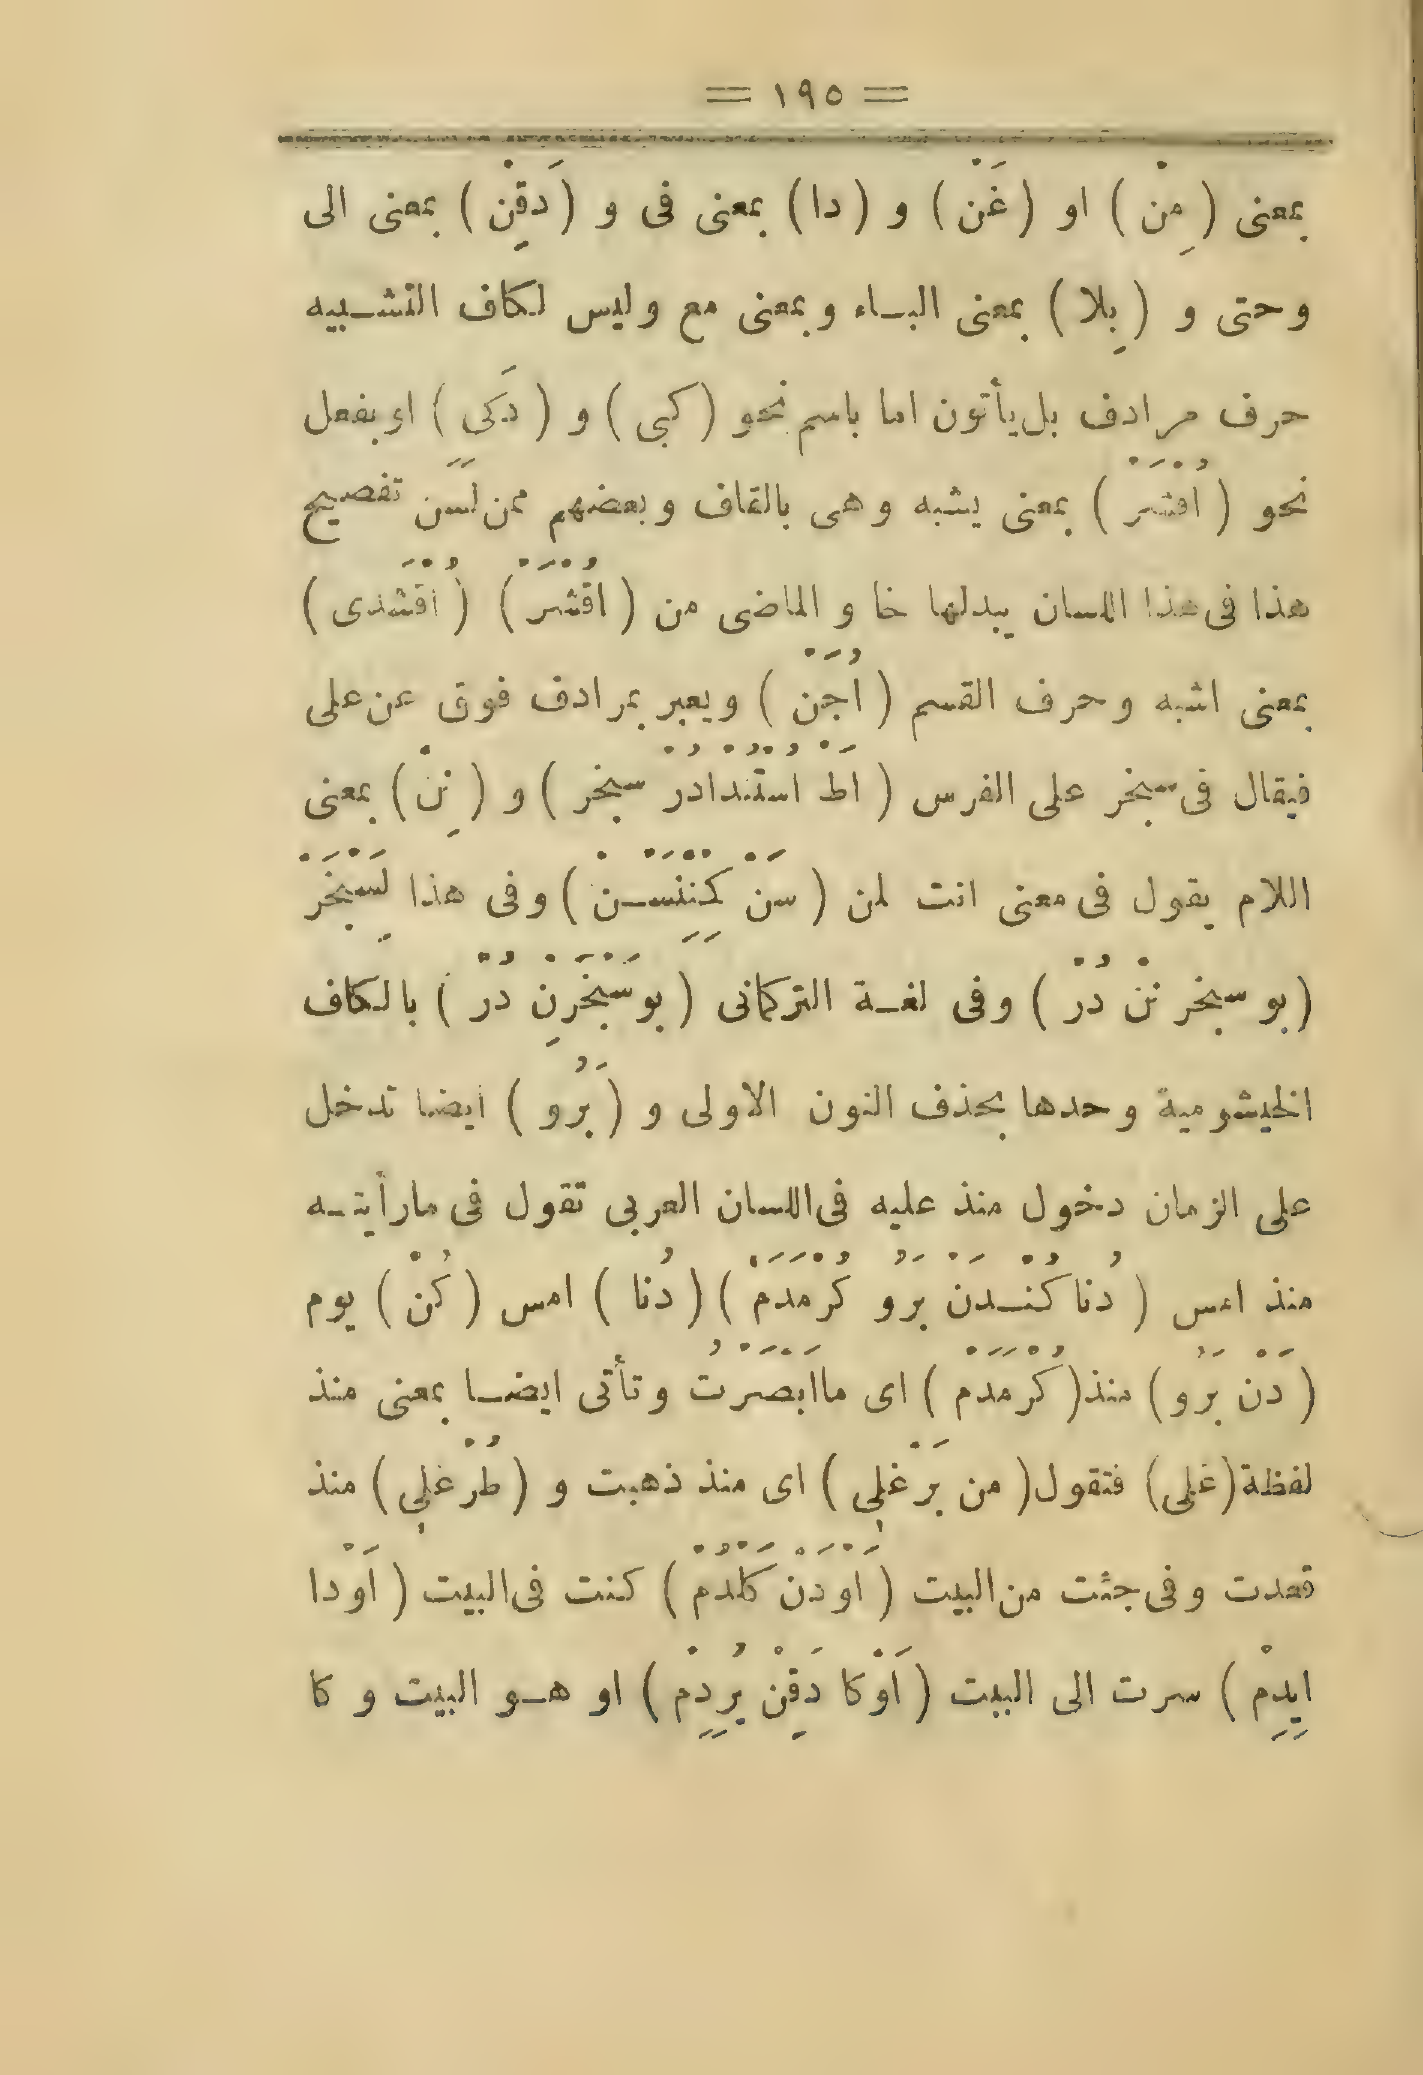 = ١٩٥ =
بمعنى ( مِنْ ) او ( غَنْ ) و ( دا ) بمعنى فى و ( دَقِنْ ) بمعنى الى
وحتى و ( بِلا ) بمعنى البـاء وبمعنى مع وليس لكاف التشـبيه
حرف مرادف بل يأتون اما باسم نحو ( كبى ) و ( دَكى ) او بفعل
نحو ( اُقْشَرْ ) بمعنى يشبه وهى بالقاف وبعضهم ممن لَسَن تفصيح
هذا فى هذا اللسان يبدلها خا و الماضى من ( اُقْشَرْ ) ( اُقْشَدى )
بمعنى اشبه وحرف القسم ( اُجَنْ ) ويعبر بمرادف فوق عن على
فيقال فى سبخر على الفرس ( اَطْ اُسْتُنْدادُرْ سبخر ) و ( نِنْ ) بمعنى
اللام يقول فى معنى انت لمن ( سَنْ كِمِنْسَـنْ ) وفى هذا لِسَبْخَرْ
( بو سبخر ننْ دُرْ ) وفى لغـة التركمانى ( بو سَبْخَرِنْ دُرْ ) بالكاف
الخيشومية وحدها بحذف النون الاولى و ( بَرُو ) ايضا تدخل
على الزمان دخول منذ عليه فى اللسان العربى تقول فى مارأيتـه
منذ امس ( دُنا كُنْـدَنْ بَرُو كُرْمَدَمْ ) ( دُنا ) امس ( كُنْ ) يوم
( دَنْ بَرُو ) منذ ( كُرْمَدَمْ ) اى ماابَصَرْتُ وتأتى ايضـا بمعنى منذ
لفظة ( غلى ) فتقول ( من بَرْغلِى ) اى منذ ذهبت و ( طُرْغلِى ) منذ
قعدت وفى جئت من البيت ( اَوْدَنْ كَلْدُمْ ) كنت فى البيت ( اَوْدا
اِيدِمْ ) سرت الى البيت ( اَوْكا دَقِنْ يُرِدِمْ ) او هـو البيت و كا